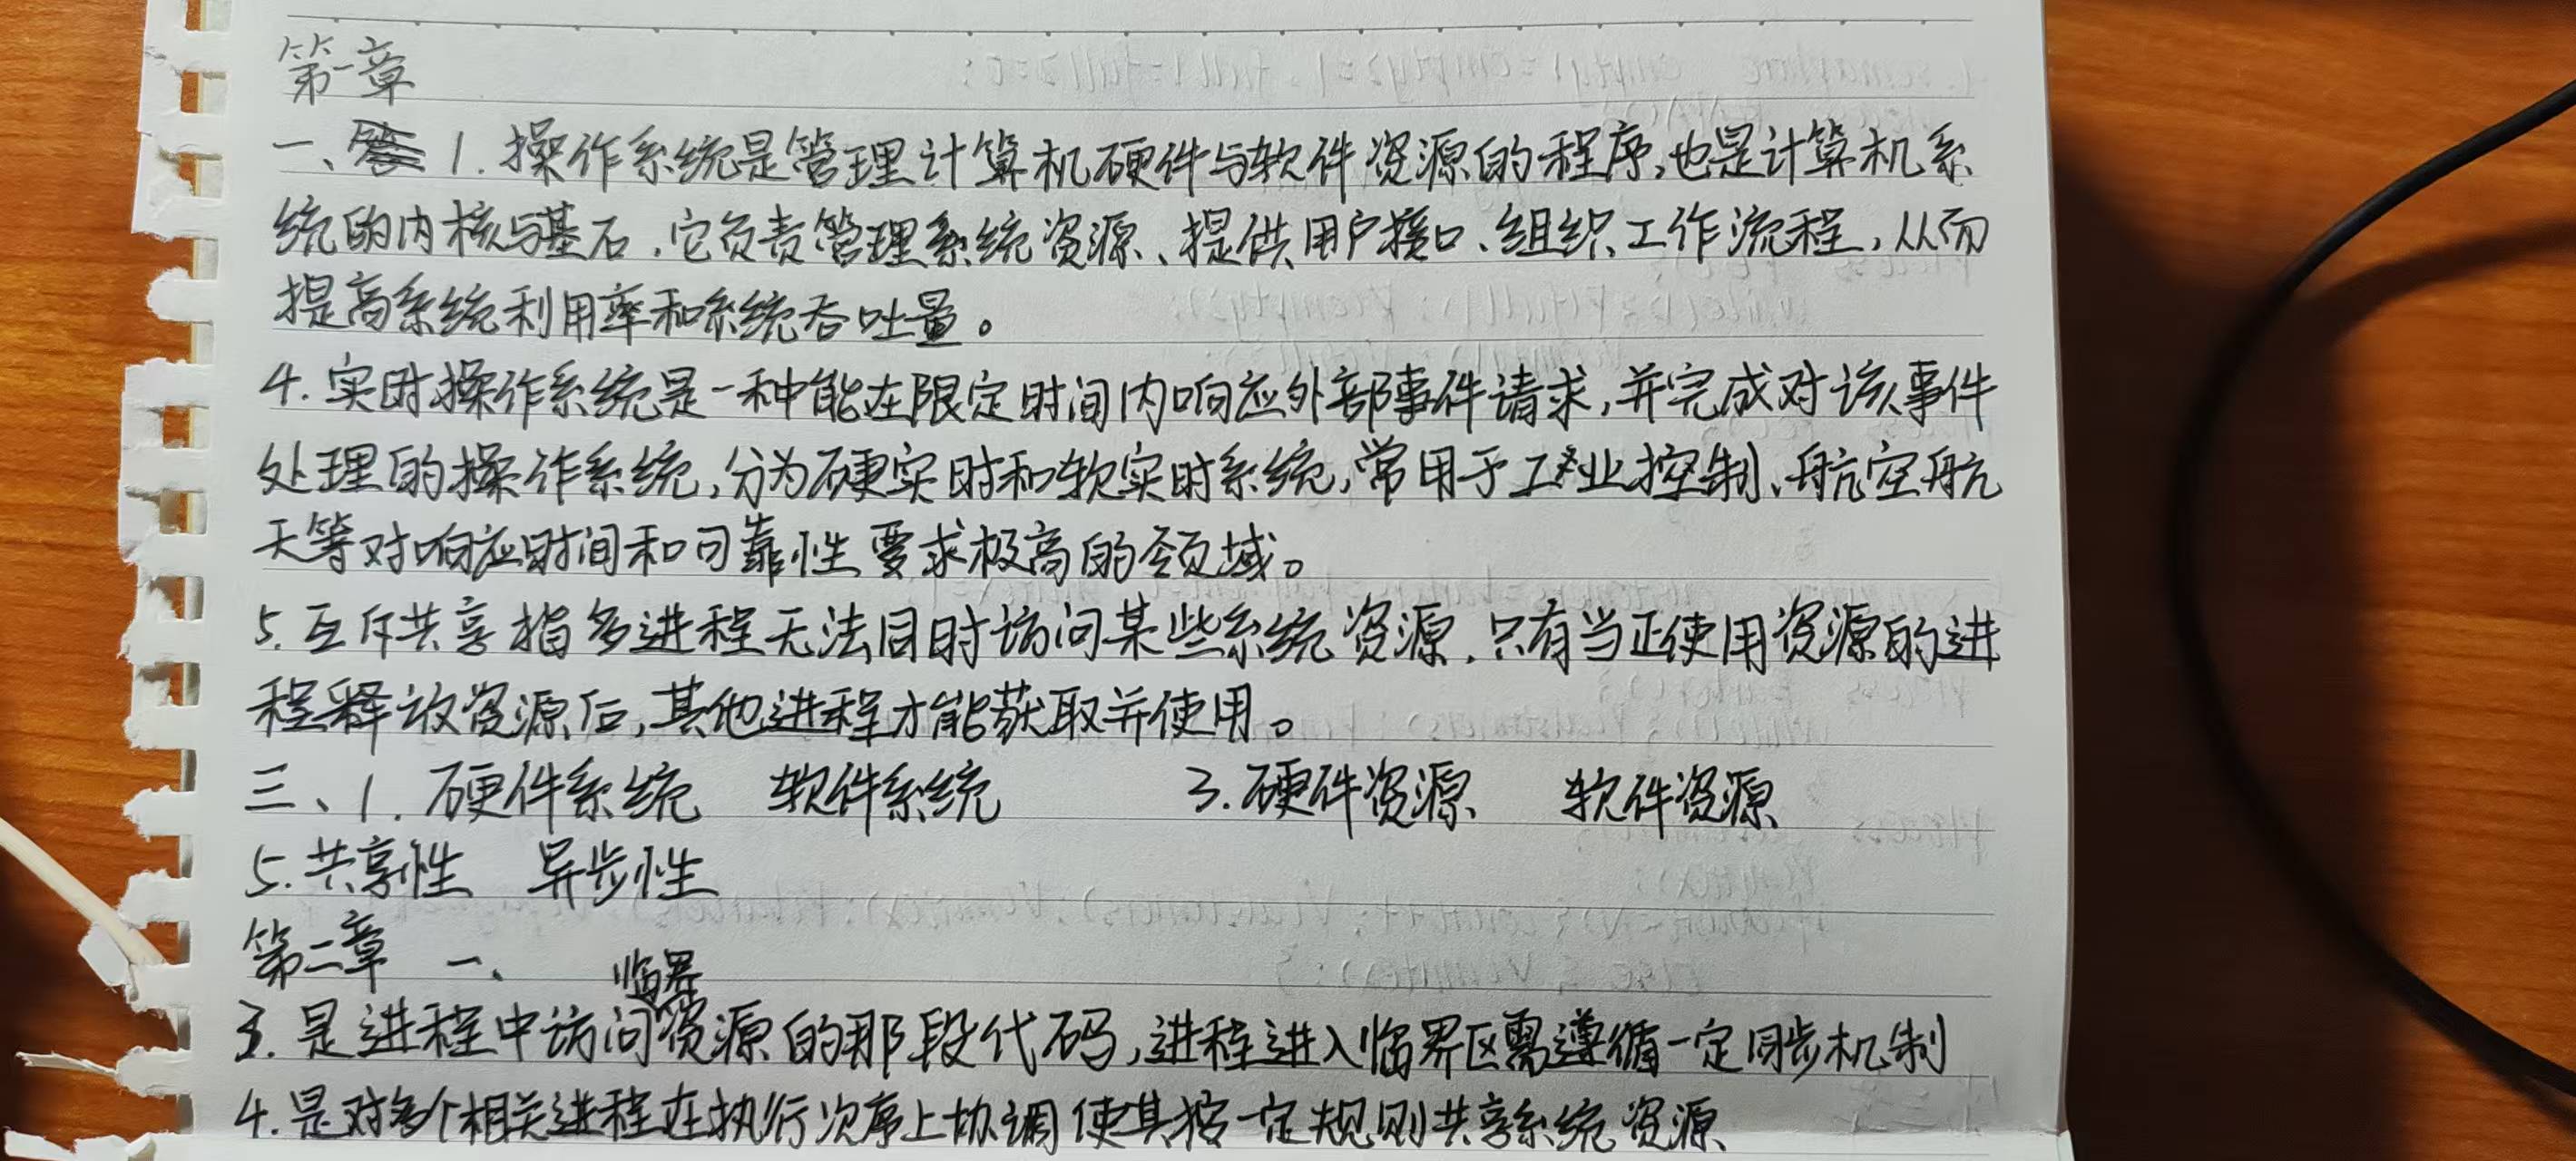 第一章
一、1.操作系统是管理计算机硬件与软件资源的程序,也是计算机系
统的内核与基石.它负责管理系统资源、提供用户接口、组织工作流程,从而
提高系统利用率和系统吞吐量。
4.实时操作系统是一种能在限定时间内响应外部事件请求,并完成对该事件
处理的操作系统,分为硬实时和软实时系统,常用于工业控制、航空航
天等对响应时间和可靠性要求极高的领域。
5.互斥共享指多进程无法同时访问某些系统资源.只有当正使用资源的进
程释放资源后,其他进程才能获取并使用。
三、1.硬件系统 软件系统 3.硬件资源 软件资源
5.共享性 异步性
第二章 一、
3.是进程中访问临界资源的那段代码,进程进入临界区需遵循一定同步机制
4.是对多个相关进程在执行次序上协调使其按一定规则共享系统资源